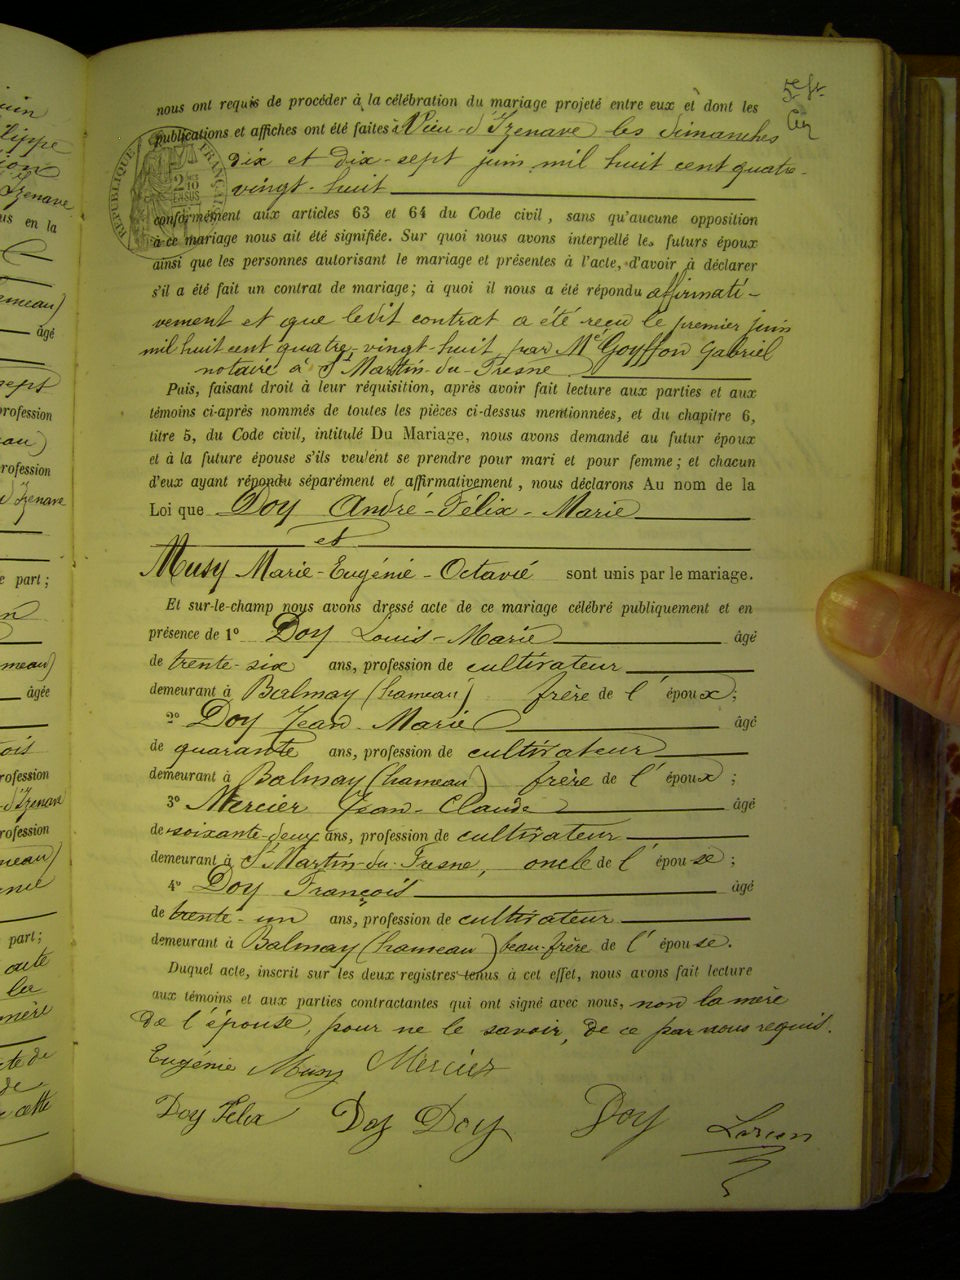 5e ft
nous ont requis de procéder à la célébration du mariage projeté entre eux et dont les
publications et affiches ont été faites à Vieu-d'Izenave les dimanches
dix et dix-sept juin mil huit cent quatre-
vingt-huit
conformément aux articles 63 et 64 du Code civil, sans qu'aucune opposition
à ce mariage nous ait été signifiée. Sur quoi nous avons interpellé les futurs époux
ainsi que les personnes autorisant le mariage et présentes à l'acte, d'avoir à déclarer
s'il a été fait un contrat de mariage; à quoi il nous a été répondu affirmati-
vement et que ledit contrat a été reçu le premier juin
mil huit cent quatre-vingt-huit par Me Goyffon Gabriel
notaire à St Martin-du-Fresne
Puis, faisant droit à leur réquisition, après avoir fait lecture aux parties et aux
témoins ci-après nommés de toutes les pièces ci-dessus mentionnées, et du chapitre 6,
titre 5, du Code civil, intitulé Du Mariage, nous avons demandé au futur époux
et à la future épouse s'ils veulent se prendre pour mari et pour femme; et chacun
d'eux ayant répondu séparément et affirmativement, nous déclarons Au nom de la
Loi que Doy André-Félix-Marie
et
Musy Marie-Eugénie-Octavie sont unis par le mariage.
Et sur-le-champ nous avons dressé acte de ce mariage célébré publiquement et en
présence de 1o Doy Louis-Marie âgé
de trente-six ans, profession de cultivateur
demeurant à Balmay (hameau) frère de l'époux;
2o Doy Jean Marie âgé
de quarante ans, profession de cultivateur
demeurant à Balmay (hameau) frère de l'époux;
3o Mercier Jean-Claude âgé
de soixante-deux ans, profession de cultivateur
demeurant à St Martin-du-Fresne, oncle de l'épouse;
4o Doy François âgé
de trente-un ans, profession de cultivateur
demeurant à Balmay (hameau) beau-frère de l'épouse.
Duquel acte, inscrit sur les deux registres tenus à cet effet, nous avons fait lecture
aux témoins et aux parties contractantes qui ont signé avec nous, non la mère
de l'épouse, pour ne le savoir, de ce par nous requis.
Eugénie Musy Mercier
Doy Félix Doy Doy Doy